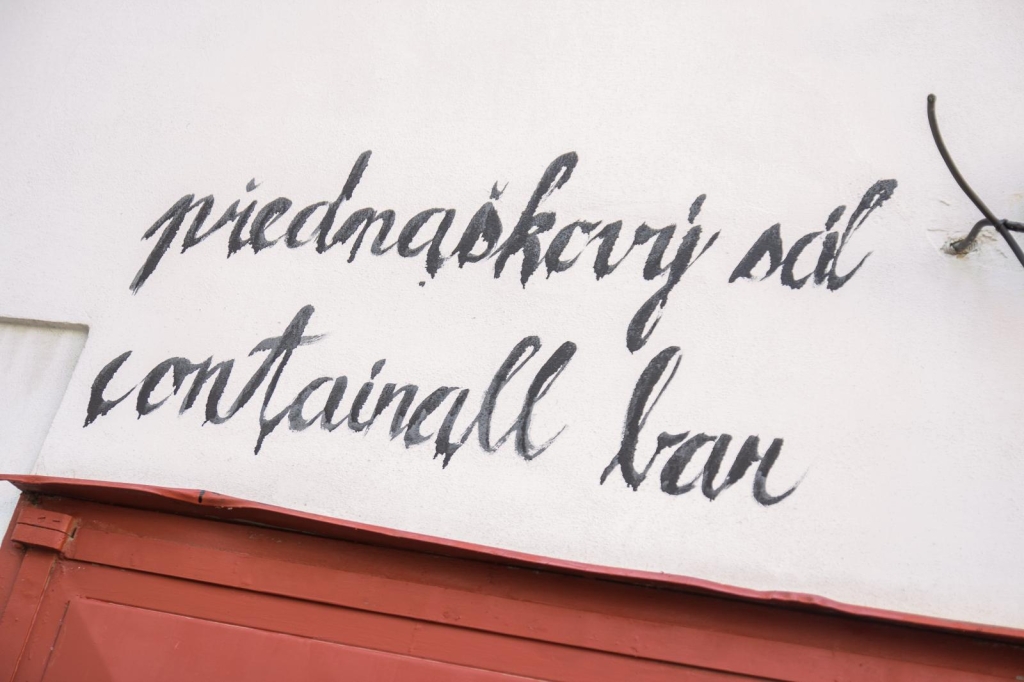 přednaškový sál
containall bar